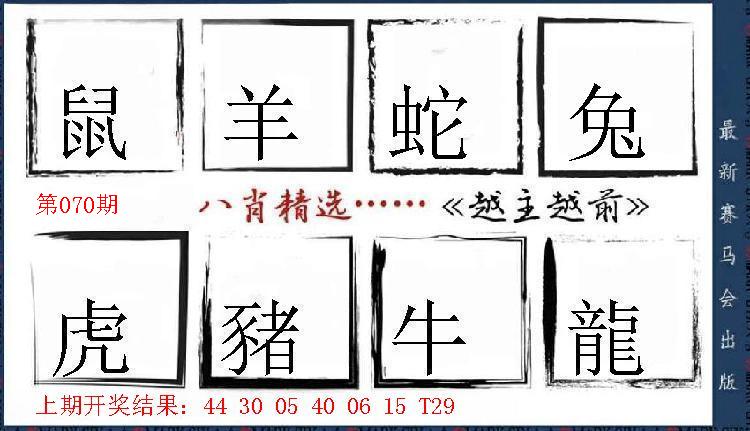 鼠 羊 蛇 兔
第070期 八肖精选……《越主越前》
虎 豬 牛 龍
上期开奖结果：44 30 05 40 06 15 T29
最新赛马会出版